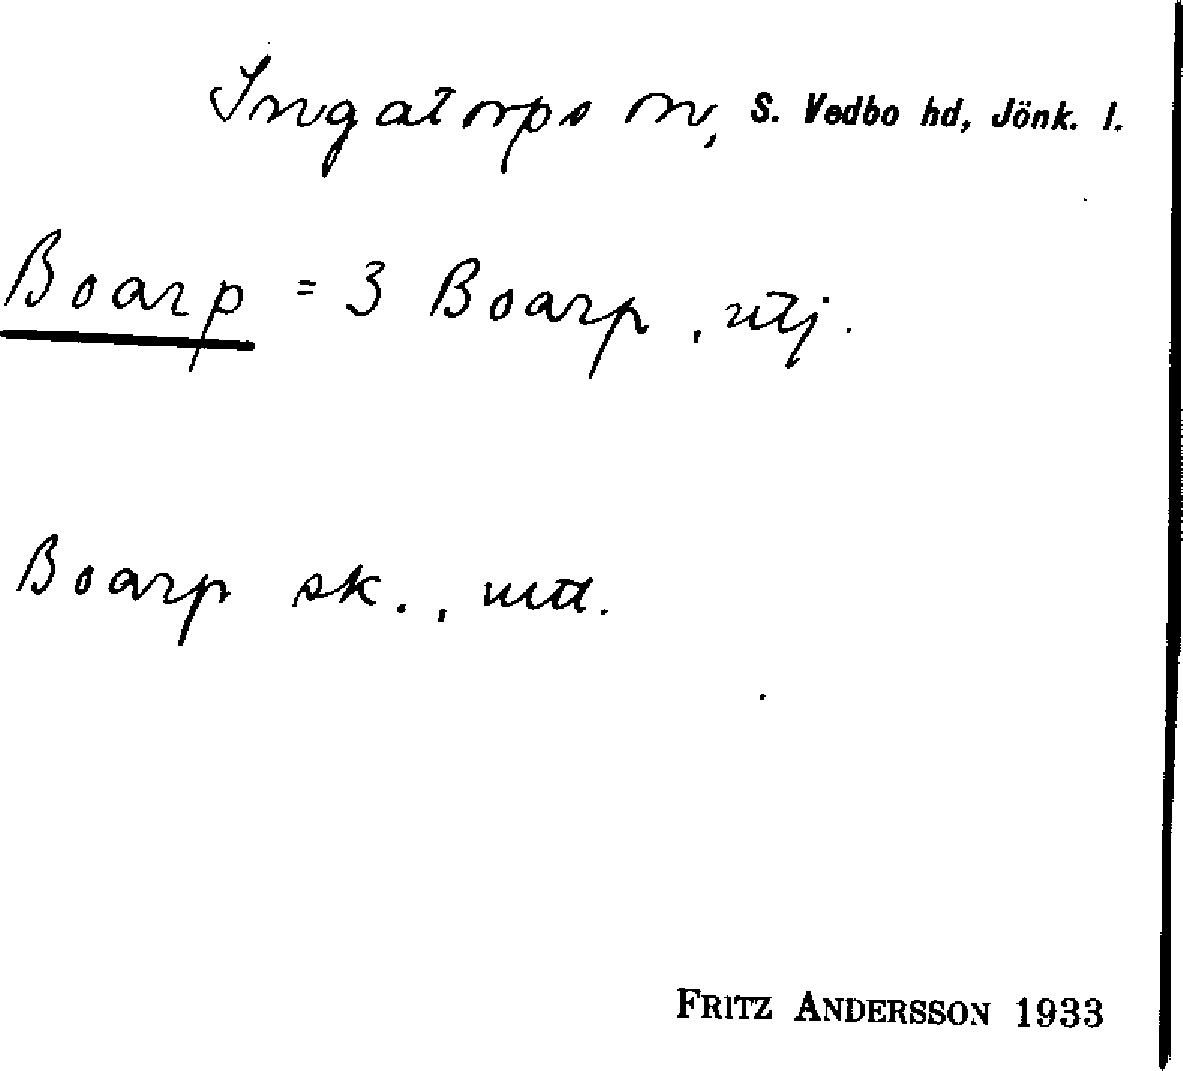 Ingatorps sn, S. Vedbo hd, Jönk. l.
Boarp = 3 Boarp, utj.
Boarp sk.,
FRITZ ANDERSSON 1933